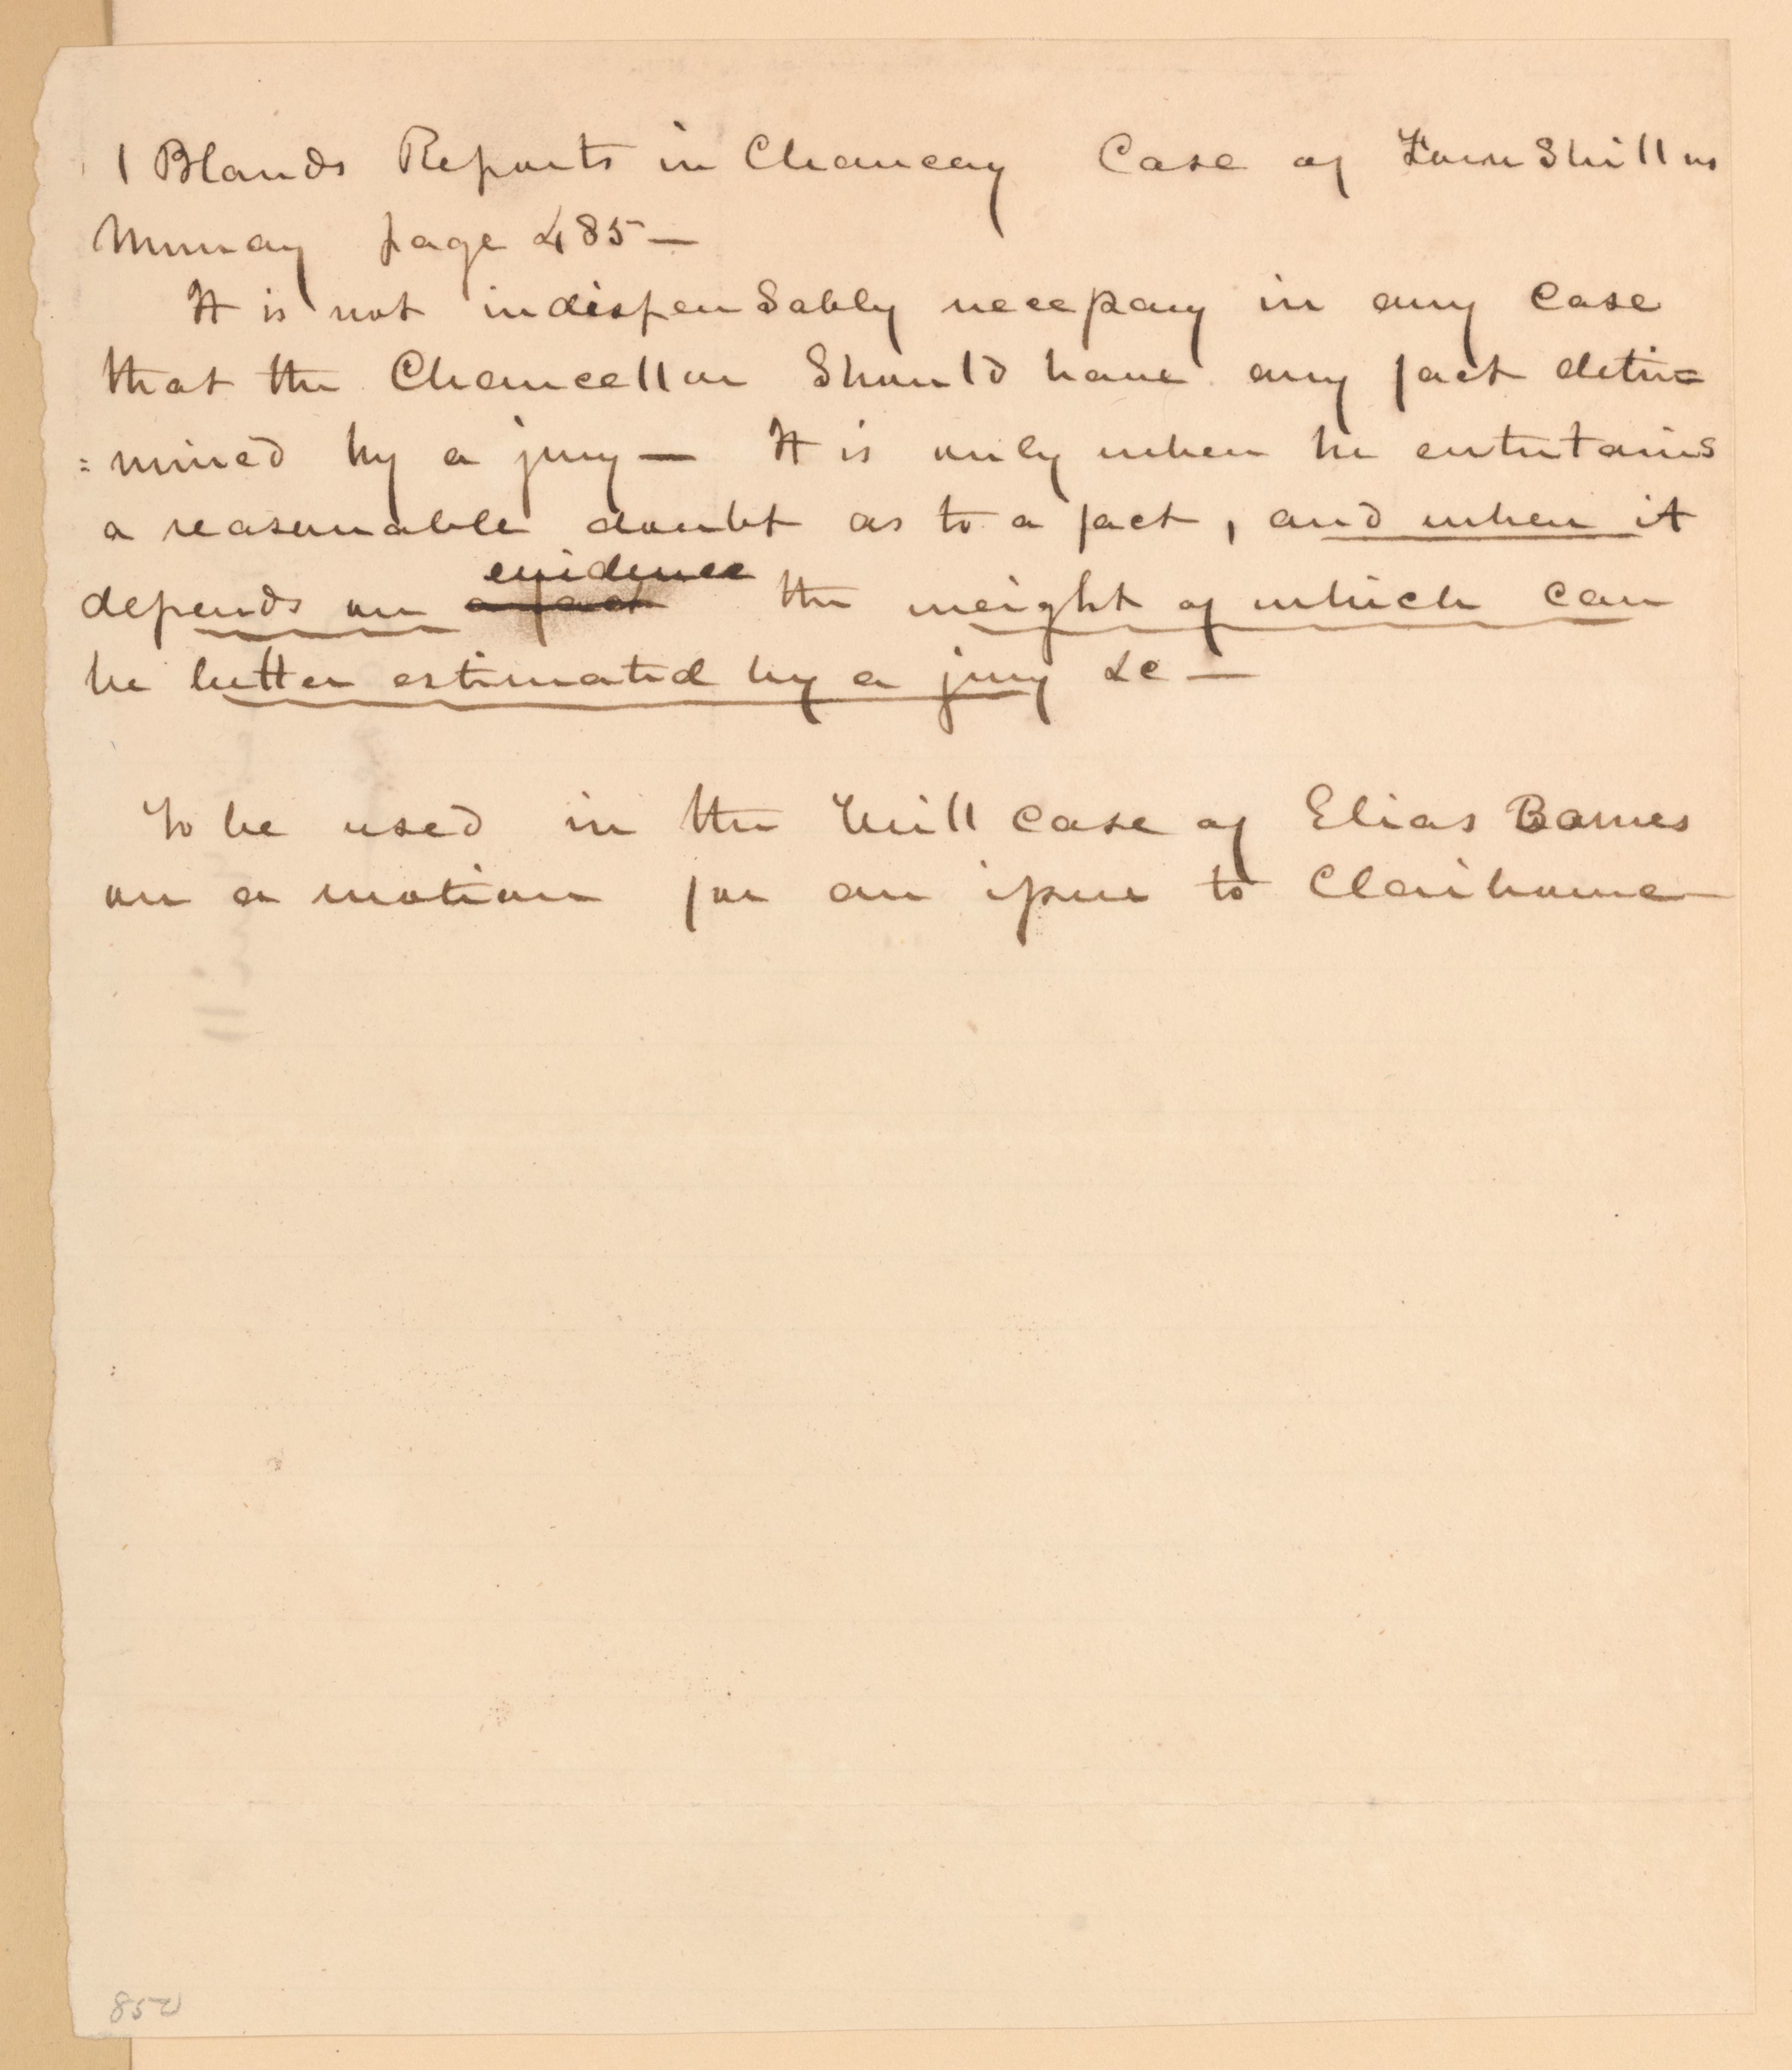 1 Blands Reports in Chancery Case of Townshill vs
Murray page 485—
It is not indispensably necessary in any case
that the Chancellor Should have any fact deter=
=mined by a jury— It is only when he entertains
a reasonable doubt as to a fact, and when it
depends on a fact evidence the weight of which can
be better estimated by a jury &c—
To be used in the Will case of Elias Barnes
on a motion for an issue to Claiborne